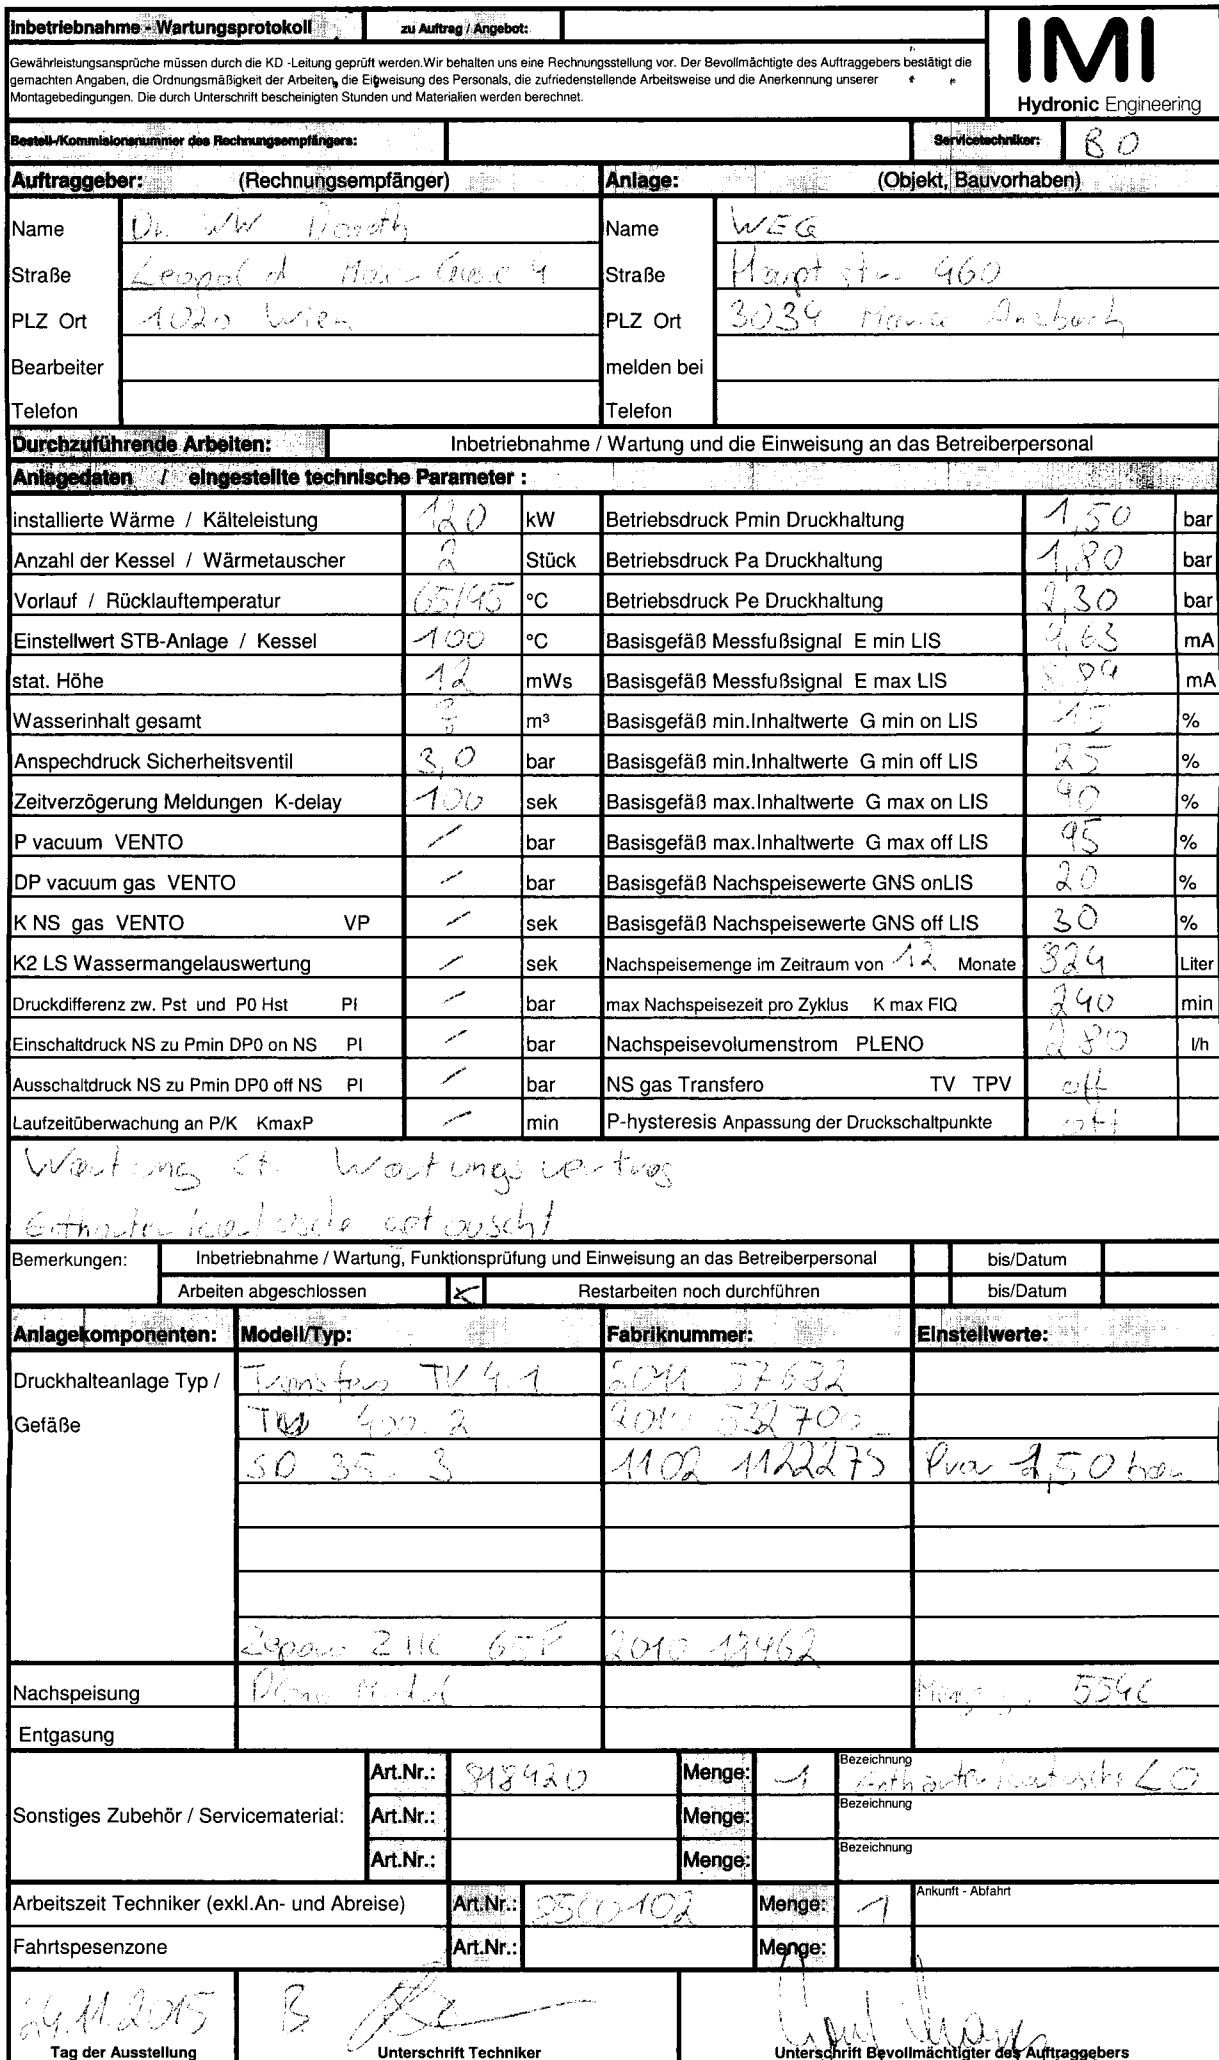 Inbetriebnahme - Wartungsprotokoll zu Auftrag / Angebot:
IMI
Hydronic Engineering
Gewährleistungsansprüche müssen durch die KD -Leitung geprüft werden.Wir behalten uns eine Rechnungsstellung vor. Der Bevollmächtigte des Auftraggebers bestätigt die
gemachten Angaben, die Ordnungsmäßigkeit der Arbeiten, die Einweisung des Personals, die zufriedenstellende Arbeitsweise und die Anerkennung unserer
Montagebedingungen. Die durch Unterschrift bescheinigten Stunden und Materialien werden berechnet.
Bestell-/Kommisionsnummer des Rechnungsempfängers: Servicetechniker: BO
Auftraggeber: (Rechnungsempfänger) Anlage: (Objekt, Bauvorhaben)
Name WW Name WEG
Straße Leopold 4 Straße Hauptstr. 460
PLZ Ort 1020 Wien PLZ Ort 3034 Maria Anzbach
Bearbeiter melden bei
Telefon Telefon
Durchzuführende Arbeiten: Inbetriebnahme / Wartung und die Einweisung an das Betreiberpersonal
Anlagedaten / eingestellte technische Parameter :
installierte Wärme / Kälteleistung 120 kW Betriebsdruck Pmin Druckhaltung 1,50 bar
Anzahl der Kessel / Wärmetauscher 2 Stück Betriebsdruck Pa Druckhaltung 1,80 bar
Vorlauf / Rücklauftemperatur 65/45 °C Betriebsdruck Pe Druckhaltung 2,30 bar
Einstellwert STB-Anlage / Kessel 100 °C Basisgefäß Messfußsignal E min LIS 4,63 mA
stat. Höhe 12 mWs Basisgefäß Messfußsignal E max LIS mA
Wasserinhalt gesamt m³ Basisgefäß min.Inhaltwerte G min on LIS 15 %
Anspechdruck Sicherheitsventil 3,0 bar Basisgefäß min.Inhaltwerte G min off LIS 25 %
Zeitverzögerung Meldungen K-delay 100 sek Basisgefäß max.Inhaltwerte G max on LIS 90 %
P vacuum VENTO / bar Basisgefäß max.Inhaltwerte G max off LIS 95 %
DP vacuum gas VENTO / bar Basisgefäß Nachspeisewerte GNS onLIS 20 %
K NS gas VENTO VP / sek Basisgefäß Nachspeisewerte GNS off LIS 30 %
K2 LS Wassermangelauswertung / sek Nachspeisemenge im Zeitraum von 12 Monate 324 Liter
Druckdifferenz zw. Pst und P0 Hst PI / bar max Nachspeisezeit pro Zyklus K max FIQ 240 min
Einschaltdruck NS zu Pmin DP0 on NS PI / bar Nachspeisevolumenstrom PLENO 280 l/h
Ausschaltdruck NS zu Pmin DP0 off NS PI / bar NS gas Transfero TV TPV off
Laufzeitüberwachung an P/K KmaxP / min P-hysteresis Anpassung der Druckschaltpunkte off
Wartung lt. Wartungsvertrag
Enthärterkartusche getauscht
Bemerkungen: Inbetriebnahme / Wartung, Funktionsprüfung und Einweisung an das Betreiberpersonal bis/Datum
Arbeiten abgeschlossen X Restarbeiten noch durchführen bis/Datum
Anlagekomponenten: Modell/Typ: Fabriknummer: Einstellwerte:
Druckhalteanlage Typ / Transfero TV 4.1 2011 57632
Gefäße 400.2 532700
SD 35.3 1102 1122275 2,50 bar
Zeparo 65F 2010 12462
Nachspeisung Pleno Modul 554l
Entgasung
Sonstiges Zubehör / Servicematerial: Art.Nr.: 818420 Menge: 1 Bezeichnung Enthärterkartusche
Art.Nr.: Menge: Bezeichnung
Art.Nr.: Menge: Bezeichnung
Arbeitszeit Techniker (exkl.An- und Abreise) Art.Nr.: 8500102 Menge: 1 Ankunft - Abfahrt
Fahrtspesenzone Art.Nr.: Menge:
24.11.2015 B.
Tag der Ausstellung Unterschrift Techniker Unterschrift Bevollmächtigter des Auftraggebers